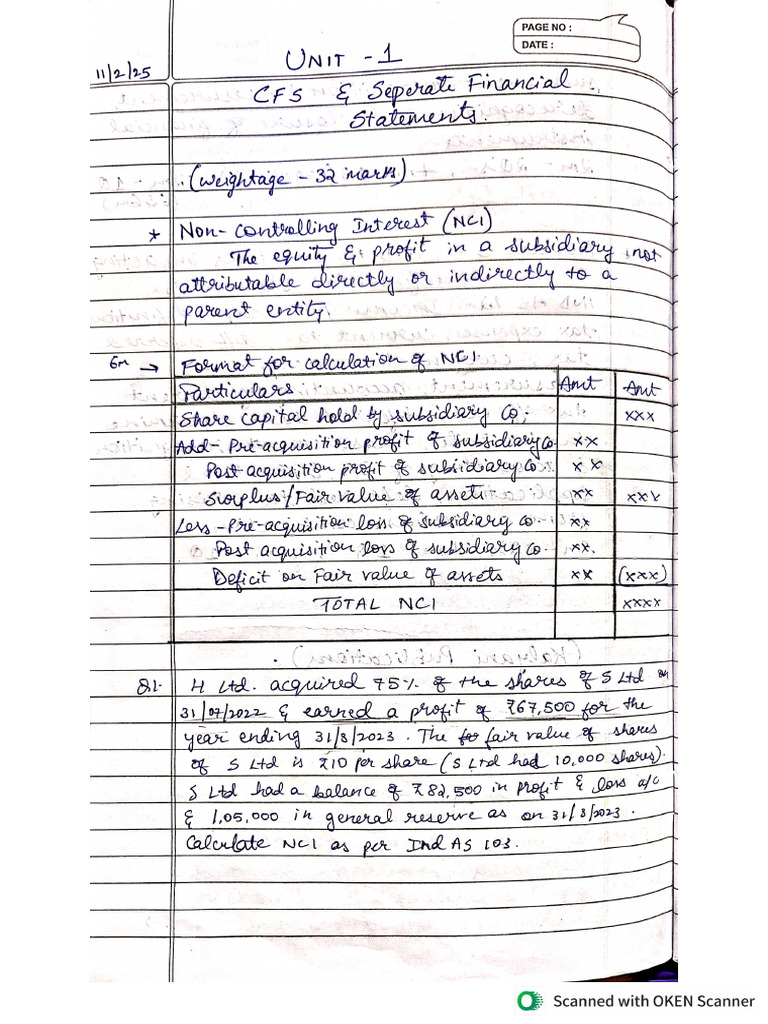 PAGE NO :
DATE :
11/2/25
UNIT - 1
CFS & Seperate Financial
Statements.
(Weightage - 32 marks)
* Non-Controlling Interest (NCI)
The equity & profit in a subsidiary not
attributable directly or indirectly to a
parent entity.
6m → Format for calculation of NCI
Particulars Amt Amt
Share capital hold by subsidiary Co; xxx
Add- Pre-acquisition profit of subsidiary co. xx
Post-acquisition profit of subsidiary Co. xx
Surplus/Fair value of assets xx xxx
Less - Pre-acquisition loss of subsidiary co. xx
Post acquisition loss of subsidiary Co. xx.
Deficit on Fair value of assets xx (xxx)
TOTAL NCI xxxx
Q1. H Ltd. acquired 75% of the shares of S Ltd on
31/07/2022 & earned a profit of ₹67,500 for the
year ending 31/3/2023. The fair value of shares
of S Ltd is ₹10 per share (S Ltd had 10,000 shares).
S Ltd had a balance of ₹82,500 in profit & loss a/c
& 1,05,000 in general reserve as on 31/3/2023.
Calculate NCI as per Ind AS 103.
Scanned with OKEN Scanner